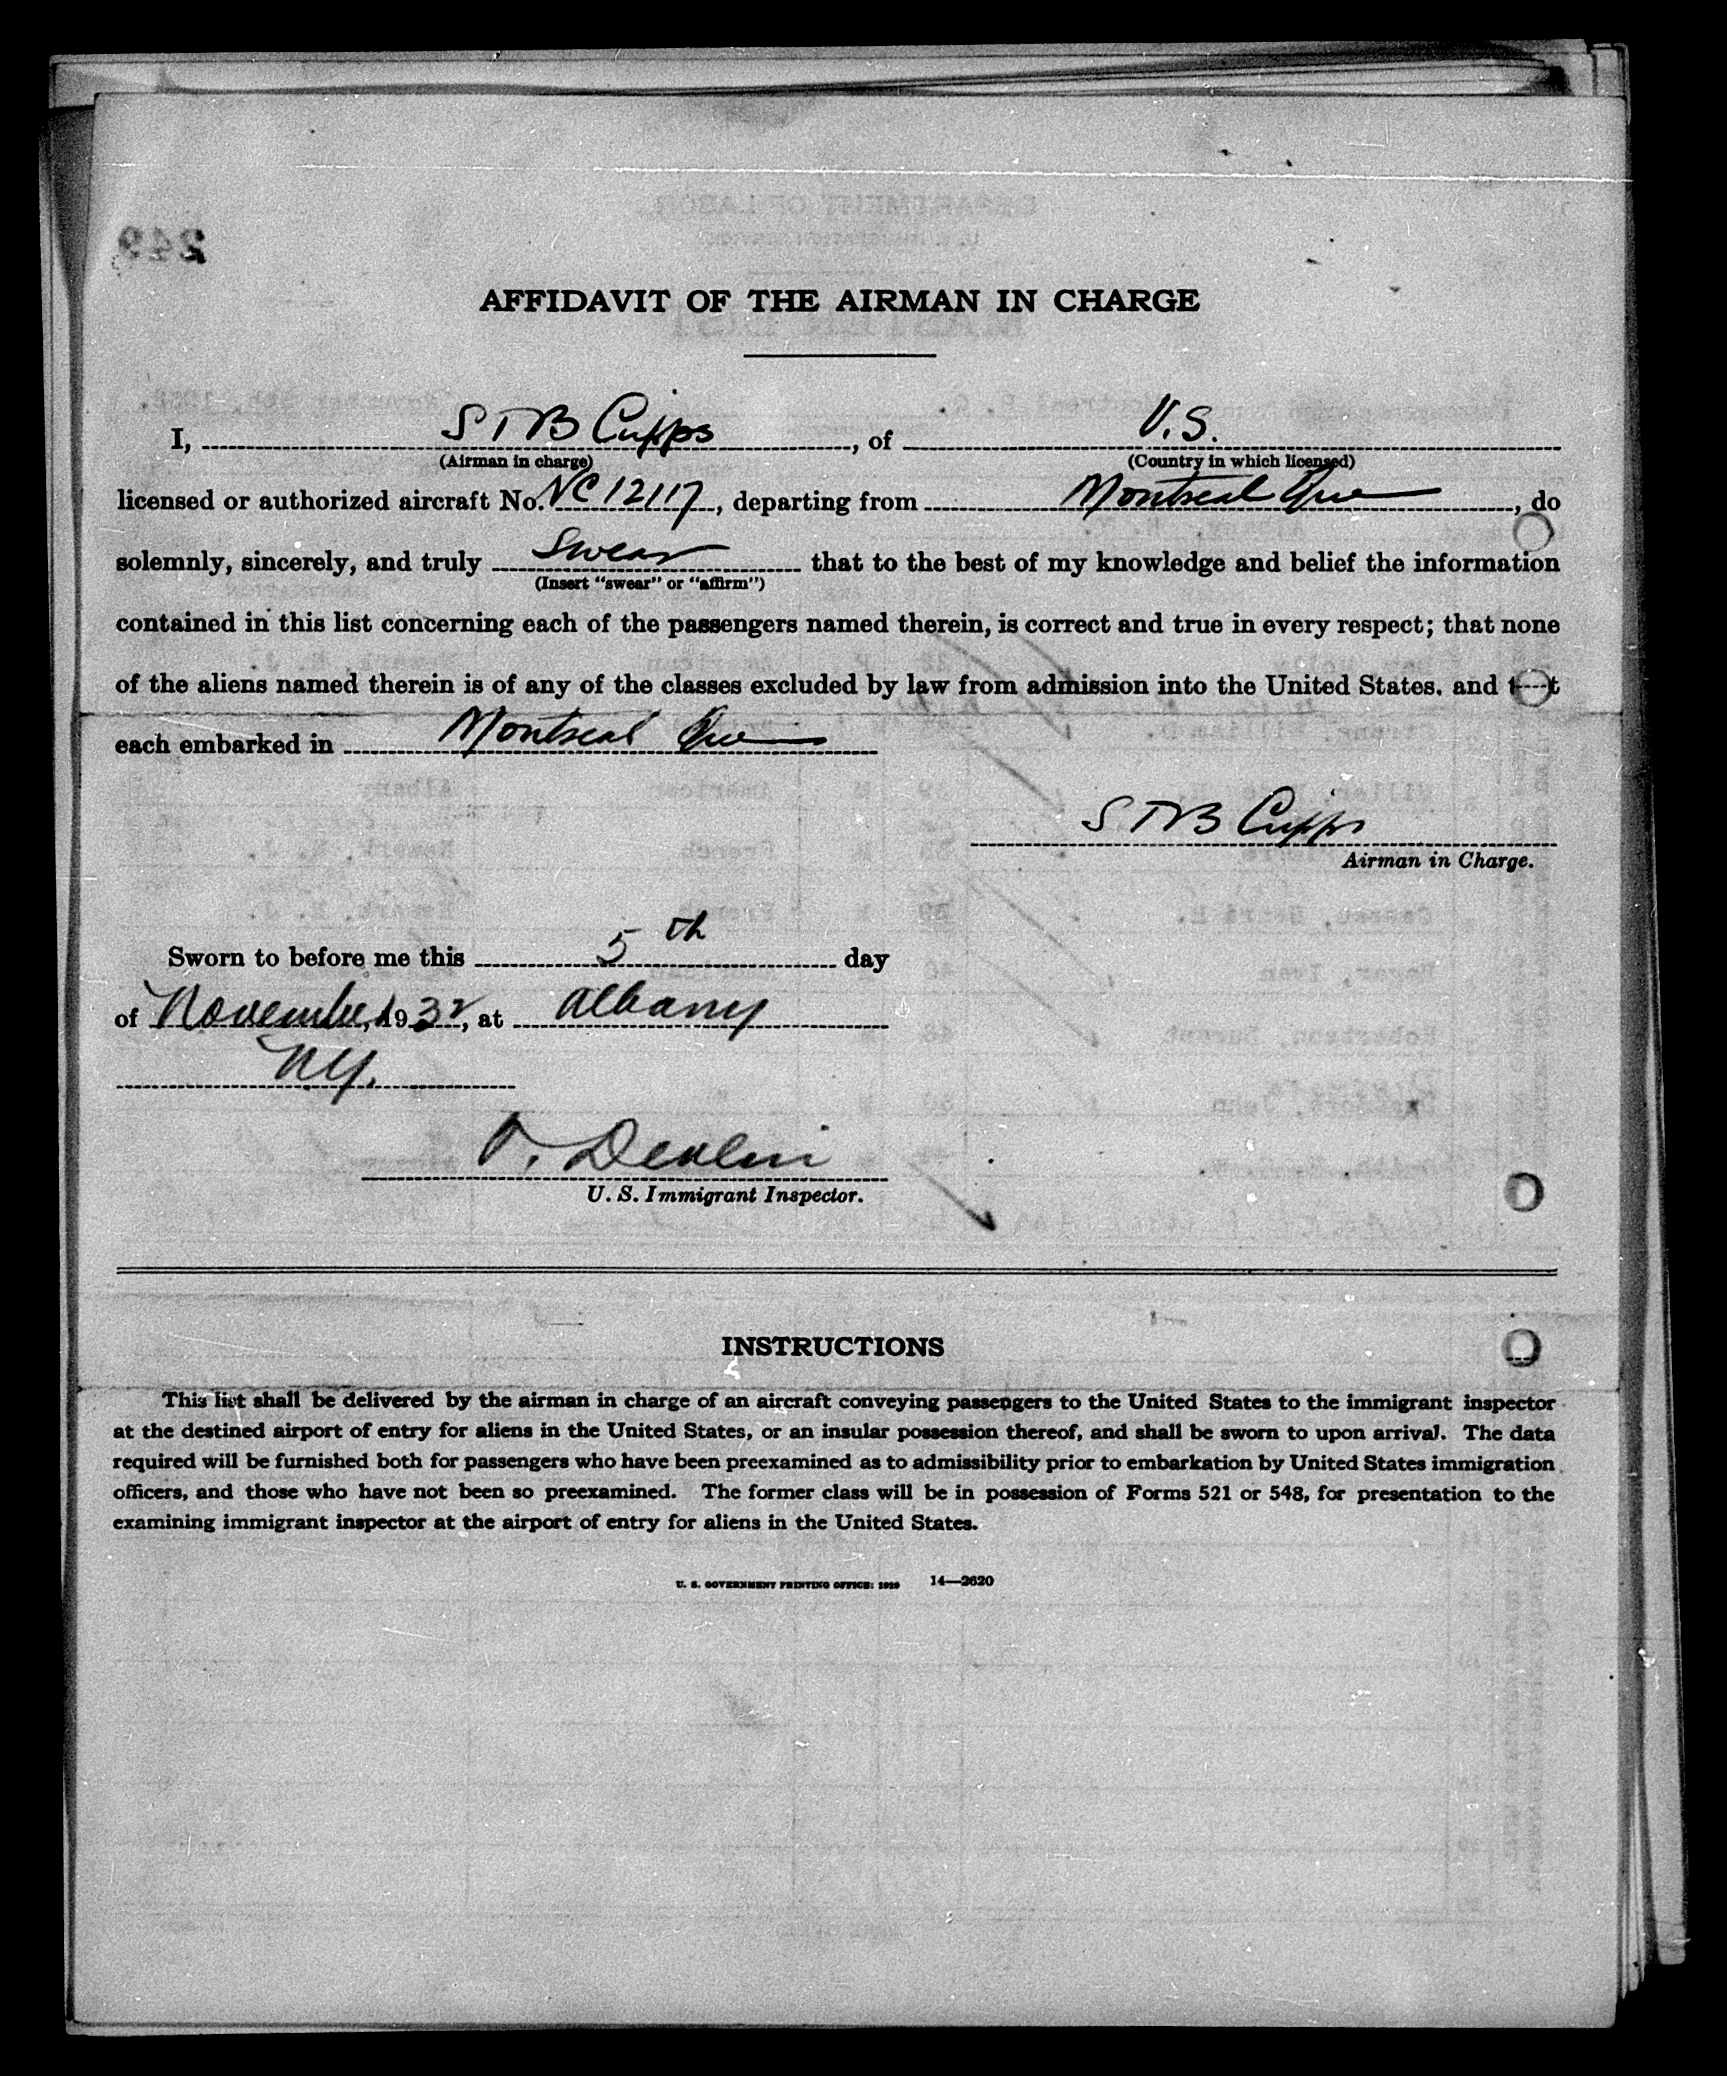 AFFIDAVIT OF THE AIRMAN IN CHARGE
I, S T B Cupps, of U.S.
(Airman in charge) (Country in which licensed)
licensed or authorized aircraft No. NC 12117, departing from Montreal Que, do
solemnly, sincerely, and truly swear that to the best of my knowledge and belief the information
(Insert "swear" or "affirm")
contained in this list concerning each of the passengers named therein, is correct and true in every respect; that none
of the aliens named therein is of any of the classes excluded by law from admission into the United States. and t t
each embarked in Montreal Que
S T B Cupps
Airman in Charge.
Sworn to before me this 5th day
of November, 1932, at Albany
N.Y.
Devlin
U. S. Immigrant Inspector.
INSTRUCTIONS
This list shall be delivered by the airman in charge of an aircraft conveying passengers to the United States to the immigrant inspector
at the destined airport of entry for aliens in the United States, or an insular possession thereof, and shall be sworn to upon arrival. The data
required will be furnished both for passengers who have been preexamined as to admissibility prior to embarkation by United States immigration
officers, and those who have not been so preexamined. The former class will be in possession of Forms 521 or 548, for presentation to the
examining immigrant inspector at the airport of entry for aliens in the United States.
U. S. GOVERNMENT PRINTING OFFICE: 1929 14—2620